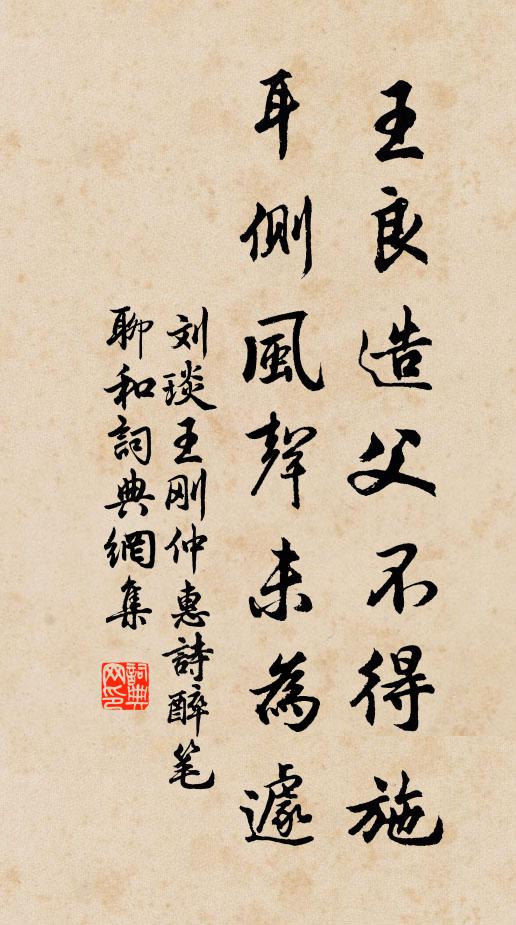 王良造父不得施
耳側風聲未為遽
刘琰王刚仲惠詩醉笔
聊和詞典網集
詞典網印